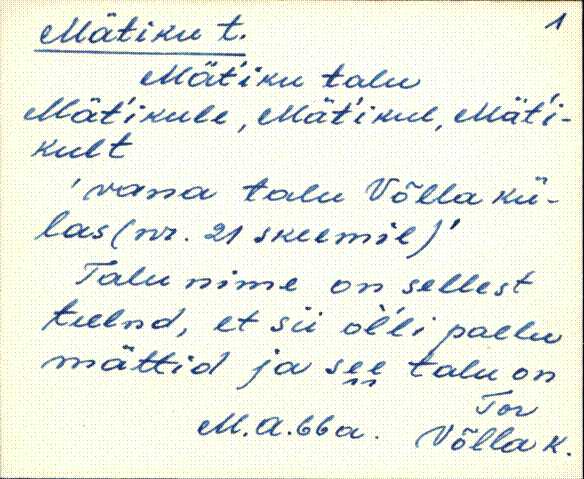 Mätiku t. 1
Mät'iku talu
Mät'ikule, Mät'ikul, Mät'i-
kult
'vana talu Võlla kü-
las (nr. 21 skeemil)'
Talu nime on sellest
tulnd, et sii ol'l'i paelu
mättid ja see talu on
Tor
M.A. 66a. Võlla k.